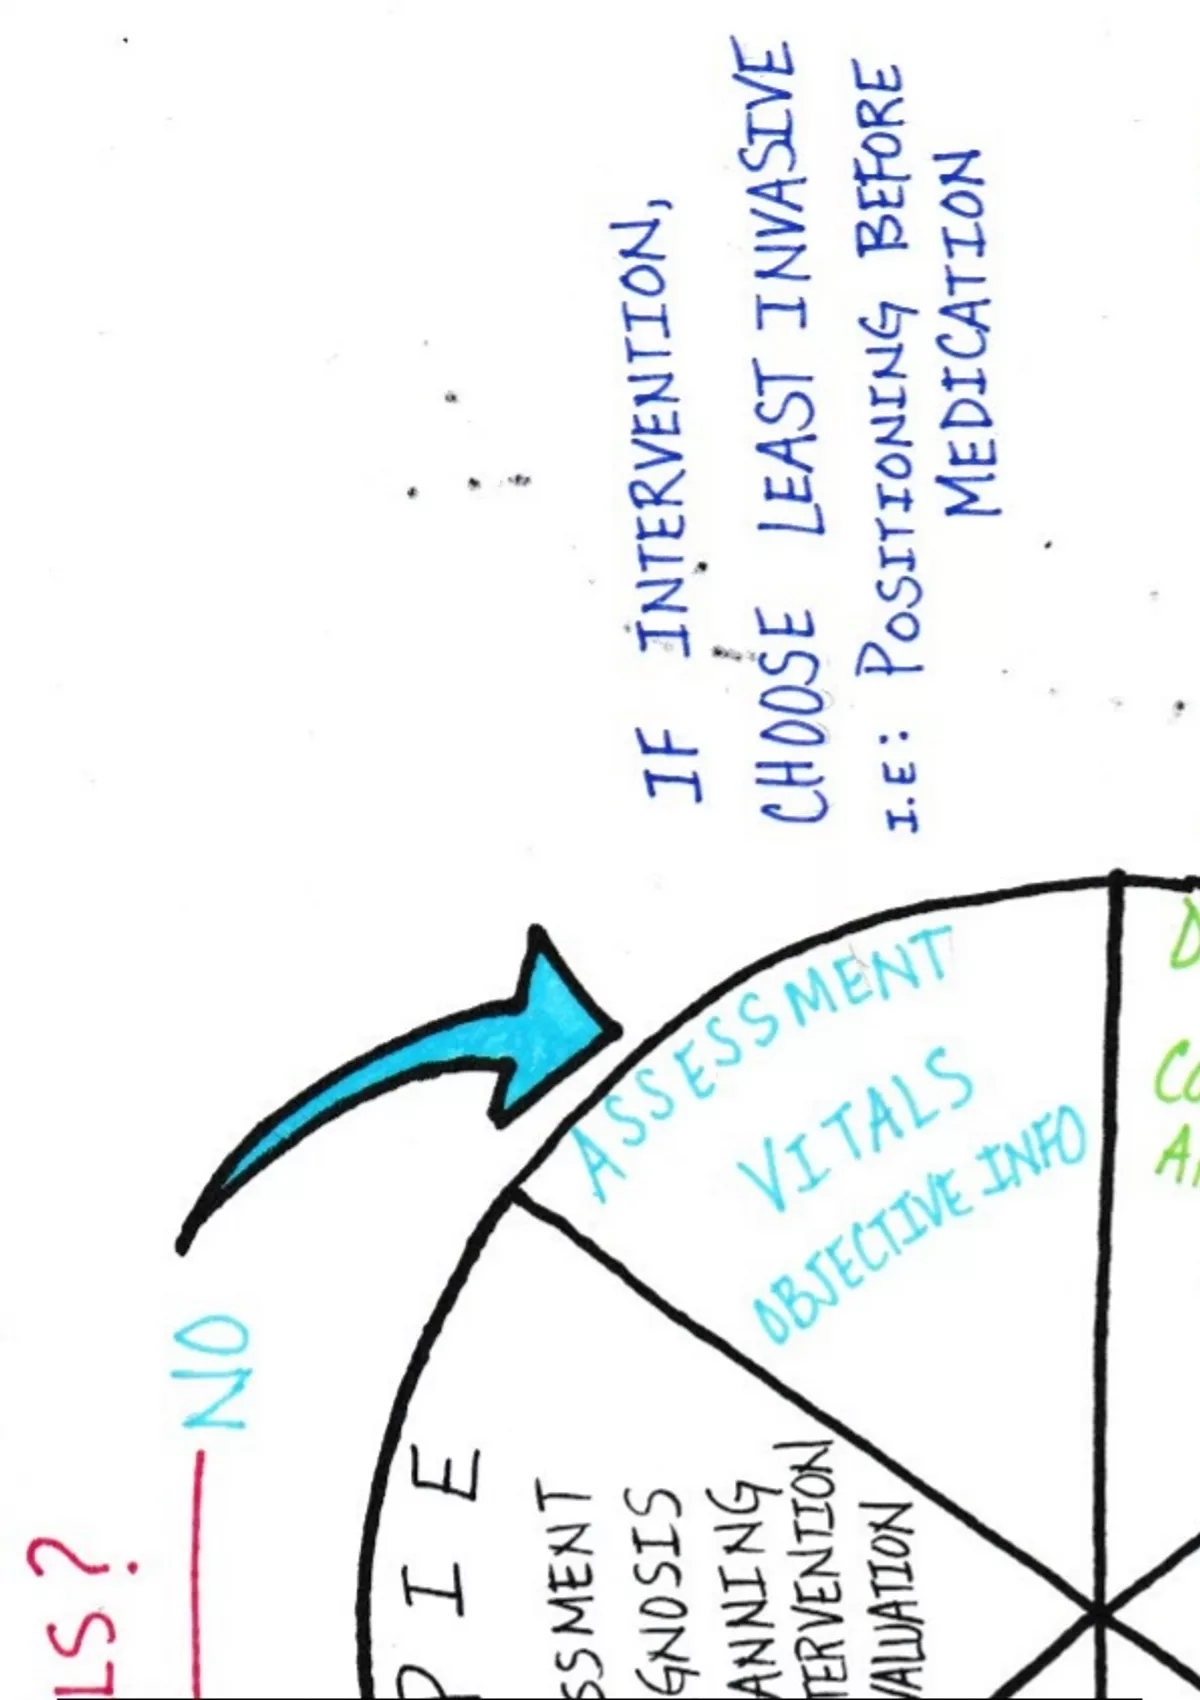 IF INTERVENTION,
CHOOSE LEAST INVASIVE
I.E: POSITIONING BEFORE
MEDICATION
LS?
NO
ASSESSMENT
VITALS
OBJECTIVE INFO
P I E
SSMENT
GNOSIS
ANNING
TERVENTION
VALUATION
D
CO
A